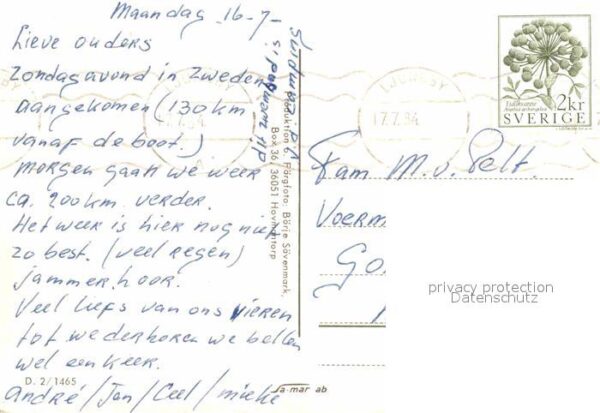 Maandag 16-7-
Lieve ouders
Zondagavond in Zweden
aangekomen (130 km
vanaf de boot.)
morgen gaan we weer
ca. 200 km. verder.
Het weer is hier nog niet
zo best. (veel regen)
jammer hoor.
Veel liefs van ons vieren
tot wederhoren we bellen
wel een keer.
André/Jan/Ceel/mieke
D. 2/1465
Produktion & Färgfoto: Börje Sävenmark,
Box 36, 36051 Hovmantorp
sa-mar ab
LJUNGBY
17.7.84
2kr
SVERIGE
Fam M.v. Pelt.
Voerm
Go
privacy protection
Datenschutz